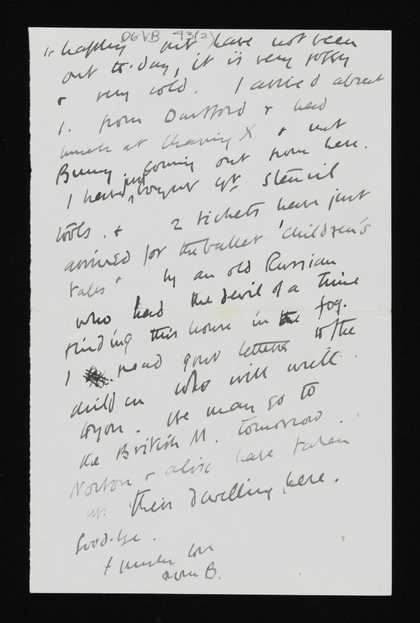 DGVB 43(2)
happy but have not been
out to-day, it is very foggy
& very cold. I arrived about
1. from Dartford & had
lunch at Charing X & met
Bunny just coming out from here.
I have bought yr stencil
tools. & 2 tickets have just
arrived for the ballet 'Children's
tales' by an old Russian
who had the devil of a time
finding this house in the fog.
I read your letters to the
children who will write
to you. We may go to
the British M. tomorrow.
Norton & Alix have taken
up their dwelling here.
Goodbye.
& much love
from B.